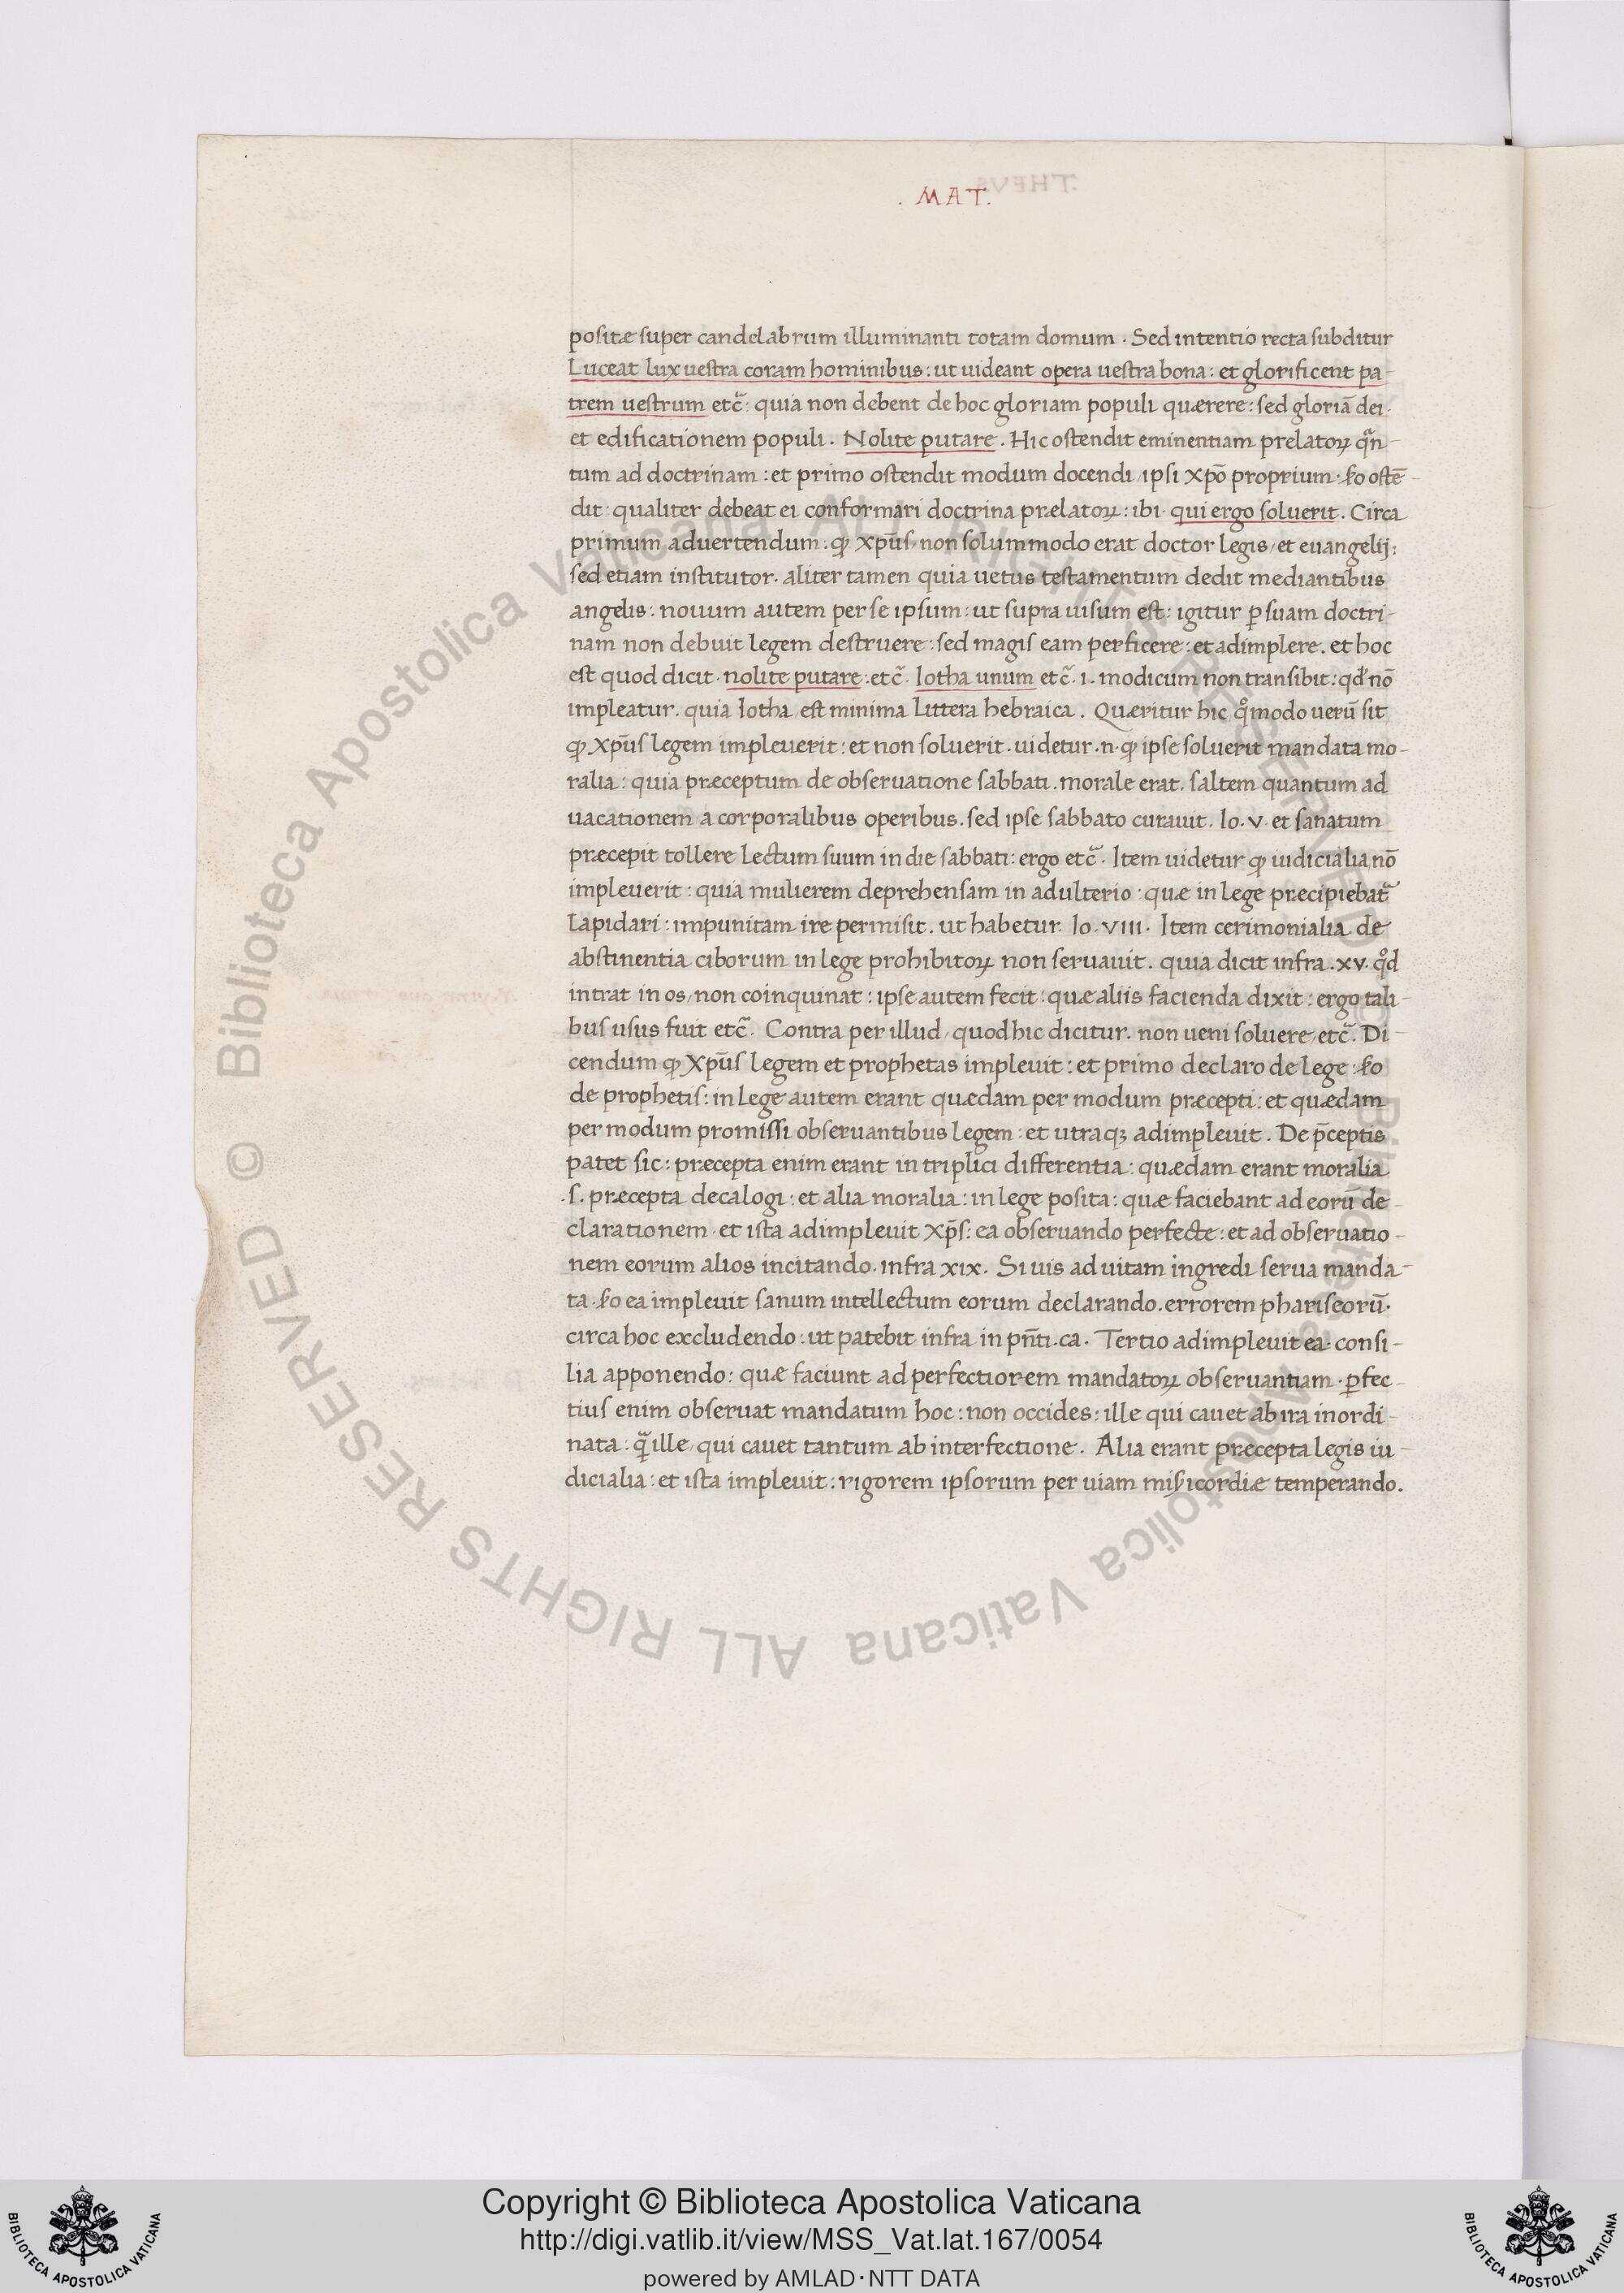 . MAT.
positæ super candelabrum illuminanti totam domum . Sed intentio recta subditur
Luceat lux uestra coram hominibus : ut uideant opera uestra bona : et glorificent pa-
trem uestrum etc̃ : quia non debent de hoc gloriam populi quærere : sed gloriã dei .
et edificationem populi . Nolite putare . Hic ostendit eminentiam prelatoꝝ qũn-
tum ad doctrinam : et primo ostendit modum docendi ipsi xp̃o proprium . ẜo ostẽ-
dit : qualiter debeat ei conformari doctrina prælatoꝝ : ibi . qui ergo soluerit . Circa
primum aduertendum . ꝙ xpũs / non solummodo erat doctor legis / et euangelij :
sed etiam institutor . aliter tamen quia uetus testamentum dedit mediantibus
angelis : nouum autem per se ipsum : ut supra uisum est : igitur ꝑ suam doctri-
nam non debuit legem destruere : sed magis eam perficere : et adimplere . et hoc
est quod dicit . nolite putare : etc̃ . Iotha unum etc̃ . i . modicum non transibit : qd̾ nõ
impleatur . quia Iotha est minima littera hebraica . Quæritur hic qͦmodo uerũ sit
ꝙ Xpũs legem impleuerit : et non soluerit . uidetur . n . ꝙ ipse soluerit mandata mo-
ralia : quia præceptum de obseruatione sabbati . morale erat . saltem quantum ad
uacationem a corporalibus operibus . sed ipse sabbato curauit . Io . V . et sanatum
præcepit tollere lectum suum in die sabbati : ergo etc̃ . Item uidetur ꝙ iudicialia nõ
impleuerit : quia mulierem deprehensam in adulterio : quæ in lege præcipiebat̃
lapidari : impunitam ire permisit . ut habetur . Io . VIII . Item cerimonialia de
abstinentia ciborum in lege prohibitoꝝ non seruauit . quia dicit infra . XV . qͦd
intrat in os / non coinquinat : ipse autem fecit : quæ aliis facienda dixit : ergo tali-
bus usus fuit etc̃ . Contra per illud / quod hic dicitur . non ueni soluere / etc̃ . Di-
cendum ꝙ Xpũs legem et prophetas impleuit : et primo declaro de lege : ẜo
de prophetis : in lege autem erant quædam per modum præcepti : et quædam
per modum promissi obseruantibus legem : et utraqꝫ adimpleuit . De p̃ceptis
patet sic : præcepta enim erant in triplici differentia : quædam erant moralia
. s . præcepta decalogi : et alia moralia : in lege posita : quæ faciebant ad eorũ de-
clarationem . et ista adimpleuit Xp̃s : ea obseruando perfecte : et ad obseruatio-
nem eorum alios incitando . infra XIX . Si uis ad uitam ingredi serua manda-
ta . ẜo ea impleuit sanum intellectum eorum declarando . errorem phariseorũ .
circa hoc excludendo : ut patebit infra in pñti . ca . Tertio adimpleuit ea . consi-
lia apponendo : quæ faciunt ad perfectiorem mandatoꝝ obseruantiam . ꝑfec-
tius enim obseruat mandatum hoc : non occides : ille qui cauet ab ira inordi-
nata : qͣ̃ ille / qui cauet tantum ab interfectione . Alia erant præcepta legis iu-
dicialia : et ista impleuit : rigorem ipsorum per uiam mis̾icordiæ temperando .
© Biblioteca Apostolica Vaticana ALL RIGHTS RESERVED © Biblioteca Apostolica Vaticana ALL RIGHTS RESERVED
Copyright © Biblioteca Apostolica Vaticana
http://digi.vatlib.it/view/MSS_Vat.lat.167/0054
powered by AMLAD·NTT DATA
BIBLIOTECA APOSTOLICA VATICANA
BIBLIOTECA APOSTOLICA VATICANA